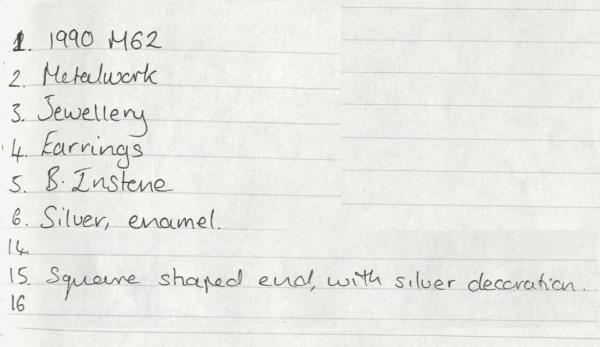 1. 1990 M62
2. Metalwork
3. Jewellery
4. Earrings
5. B. Instene
6. Silver, enamel.
14.
15. Square shaped end, with silver decoration.
16